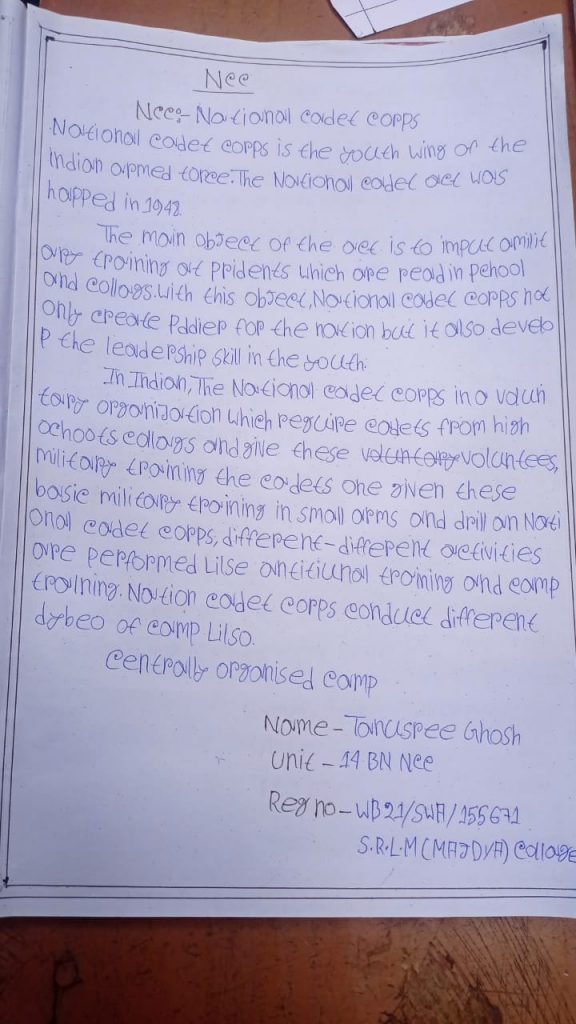 Ncc
Ncc:- National cadet corps
National cadet corps is the youth wing of the
indian armed force. The National cadet act was
happed in 1948.
The main object of the act is to imput a milit
ary training at pridents which are read in pehool
and collags. With this object, National cadet corps not
only create Pddier for the nation but it also develo
p the leadership skill in the youth.
In Indian, The National cadet corps in a volun
tary organization which require cadets from high
ochoots collags and give these voluntary voluntees,
military training the cadets one given these
basic military training in small arms and drill an Nati
onal cadet corps, different-different activities
are performed Lilse antitiunal training and camp
training. Nation cadet corps conduct different
dybeo of camp Lilso.
Centrally organised camp
Name - Tanusree Ghosh
Unit - 14 BN Ncc
Reg no - WB21/SWA/155671
S.R.L.M (MAJDYA) Collage